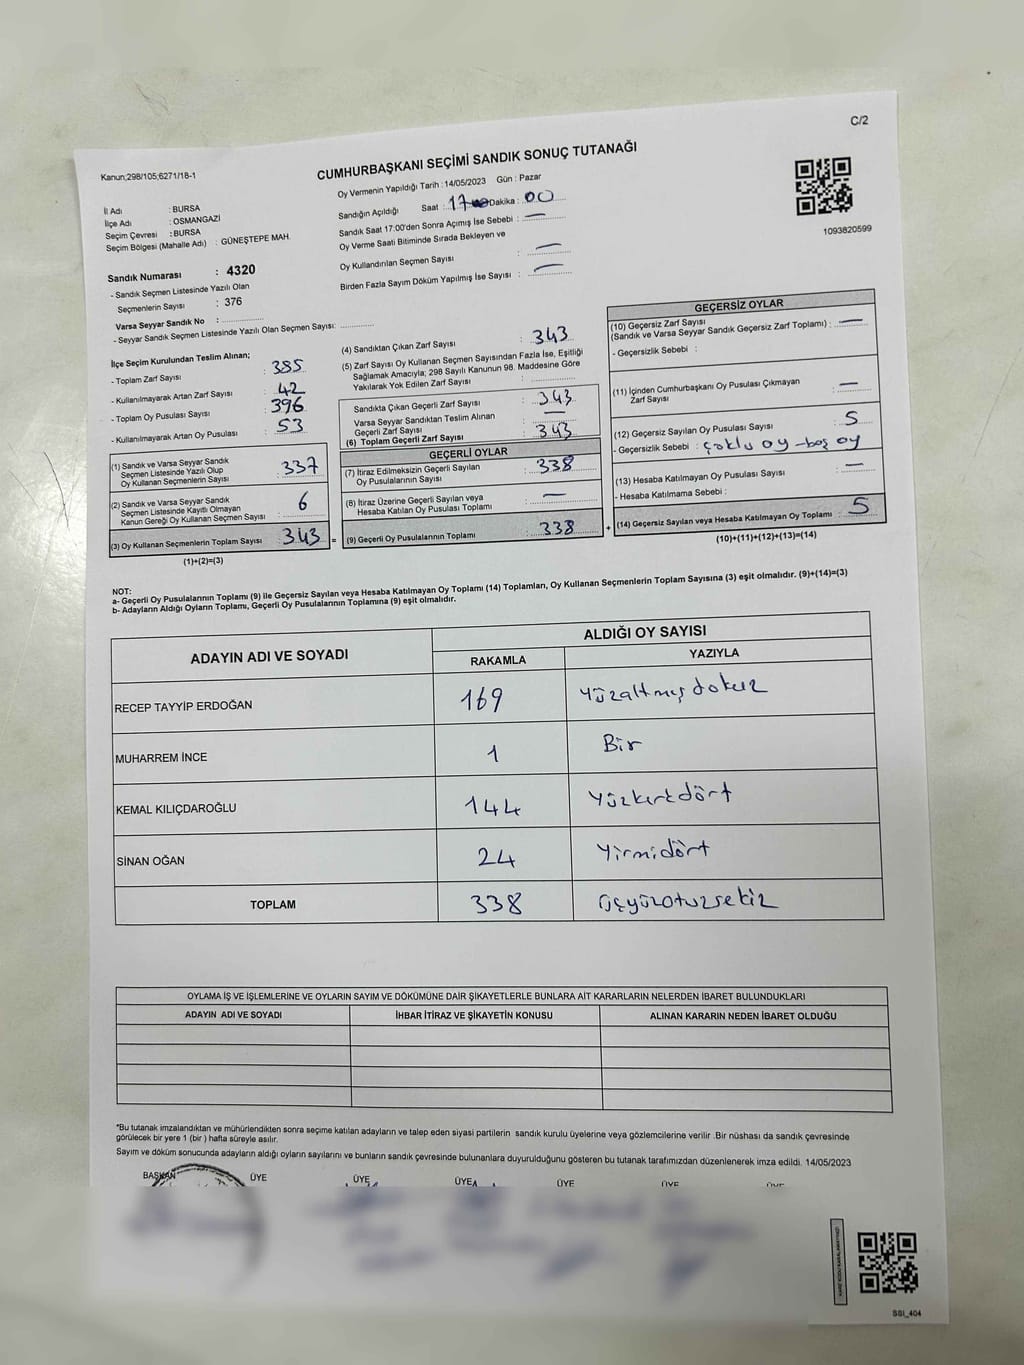 C/2
Kanun;298/105;6271/18-1
CUMHURBAŞKANI SEÇİMİ SANDIK SONUÇ TUTANAĞI
Oy Vermenin Yapıldığı Tarih : 14/05/2023 Gün : Pazar
İl Adı : BURSA
İlçe Adı : OSMANGAZİ
Seçim Çevresi : BURSA
Seçim Bölgesi (Mahalle Adı) : GÜNEŞTEPE MAH.
Sandık Numarası : 4320
- Sandık Seçmen Listesinde Yazılı Olan
Seçmenlerin Sayısı : 376
Varsa Seyyar Sandık No :
- Seyyar Sandık Seçmen Listesinde Yazılı Olan Seçmen Sayısı:
Sandığın Açıldığı Saat : 17 Dakika : 00
Sandık Saat 17:00'den Sonra Açımış İse Sebebi : —
Oy Verme Saati Bitiminde Sırada Bekleyen ve
Oy Kullandırılan Seçmen Sayısı : —
Birden Fazla Sayım Döküm Yapılmış İse Sayısı : —
1093820599
İlçe Seçim Kurulundan Teslim Alınan;
- Toplam Zarf Sayısı : 385
- Kullanılmayarak Artan Zarf Sayısı : 42
- Toplam Oy Pusulası Sayısı : 396
- Kullanılmayarak Artan Oy Pusulası : 53
(1) Sandık ve Varsa Seyyar Sandık
Seçmen Listesinde Yazılı Olup
Oy Kullanan Seçmenlerin Sayısı : 337
(2) Sandık ve Varsa Seyyar Sandık
Seçmen Listesinde Kayıtlı Olmayan
Kanun Gereği Oy Kullanan Seçmen Sayısı : 6
(3) Oy Kullanan Seçmenlerin Toplam Sayısı : 343 =
(1)+(2)=(3)
(4) Sandıktan Çıkan Zarf Sayısı : 343
(5) Zarf Sayısı Oy Kullanan Seçmen Sayısından Fazla İse, Eşitliği
Sağlamak Amacıyla; 298 Sayılı Kanunun 98. Maddesine Göre
Yakılarak Yok Edilen Zarf Sayısı :
Sandıkta Çıkan Geçerli Zarf Sayısı : 343
Varsa Seyyar Sandıktan Teslim Alınan
Geçerli Zarf Sayısı : —
(6) Toplam Geçerli Zarf Sayısı : 343
GEÇERLİ OYLAR
(7) İtiraz Edilmeksizin Geçerli Sayılan
Oy Pusulalarının Sayısı : 338
(8) İtiraz Üzerine Geçerli Sayılan veya
Hesaba Katılan Oy Pusulası Toplamı : —
(9) Geçerli Oy Pusulalarının Toplamı : 338 +
GEÇERSİZ OYLAR
(10) Geçersiz Zarf Sayısı
(Sandık ve Varsa Seyyar Sandık Geçersiz Zarf Toplamı) : —
- Geçersizlik Sebebi :
(11) İçinden Cumhurbaşkanı Oy Pusulası Çıkmayan
Zarf Sayısı : —
(12) Geçersiz Sayılan Oy Pusulası Sayısı : 5
- Geçersizlik Sebebi : çoklu oy - boş oy
(13) Hesaba Katılmayan Oy Pusulası Sayısı : —
- Hesaba Katılmama Sebebi :
(14) Geçersiz Sayılan veya Hesaba Katılmayan Oy Toplamı : 5
(10)+(11)+(12)+(13)=(14)
NOT:
a- Geçerli Oy Pusulalarının Toplamı (9) ile Geçersiz Sayılan veya Hesaba Katılmayan Oy Toplamı (14) Toplamları, Oy Kullanan Seçmenlerin Toplam Sayısına (3) eşit olmalıdır. (9)+(14)=(3)
b- Adayların Aldığı Oyların Toplamı, Geçerli Oy Pusulalarının Toplamına (9) eşit olmalıdır.
ADAYIN ADI VE SOYADI ALDIĞI OY SAYISI
RAKAMLA YAZIYLA
RECEP TAYYİP ERDOĞAN 169 Yüzaltmışdokuz
MUHARREM İNCE 1 Bir
KEMAL KILIÇDAROĞLU 144 Yüzkırkdört
SİNAN OĞAN 24 Yirmidört
TOPLAM 338 üçyüzotuzsekiz
OYLAMA İŞ VE İŞLEMLERİNE VE OYLARIN SAYIM VE DÖKÜMÜNE DAİR ŞİKAYETLERLE BUNLARA AİT KARARLARIN NELERDEN İBARET BULUNDUKLARI
ADAYIN ADI VE SOYADI İHBAR İTİRAZ VE ŞİKAYETİN KONUSU ALINAN KARARIN NEDEN İBARET OLDUĞU
*Bu tutanak imzalandıktan ve mühürlendikten sonra seçime katılan adayların ve talep eden siyasi partilerin sandık kurulu üyelerine veya gözlemcilerine verilir .Bir nüshası da sandık çevresinde
görülecek bir yere 1 (bir ) hafta süreyle asılır.
Sayım ve döküm sonucunda adayların aldığı oyların sayılarını ve bunların sandık çevresinde bulunanlara duyurulduğunu gösteren bu tutanak tarafımızdan düzenlenerek imza edildi. 14/05/2023
BAŞKAN ÜYE ÜYE ÜYE ÜYE ÜYE ÜYE
SSI_404